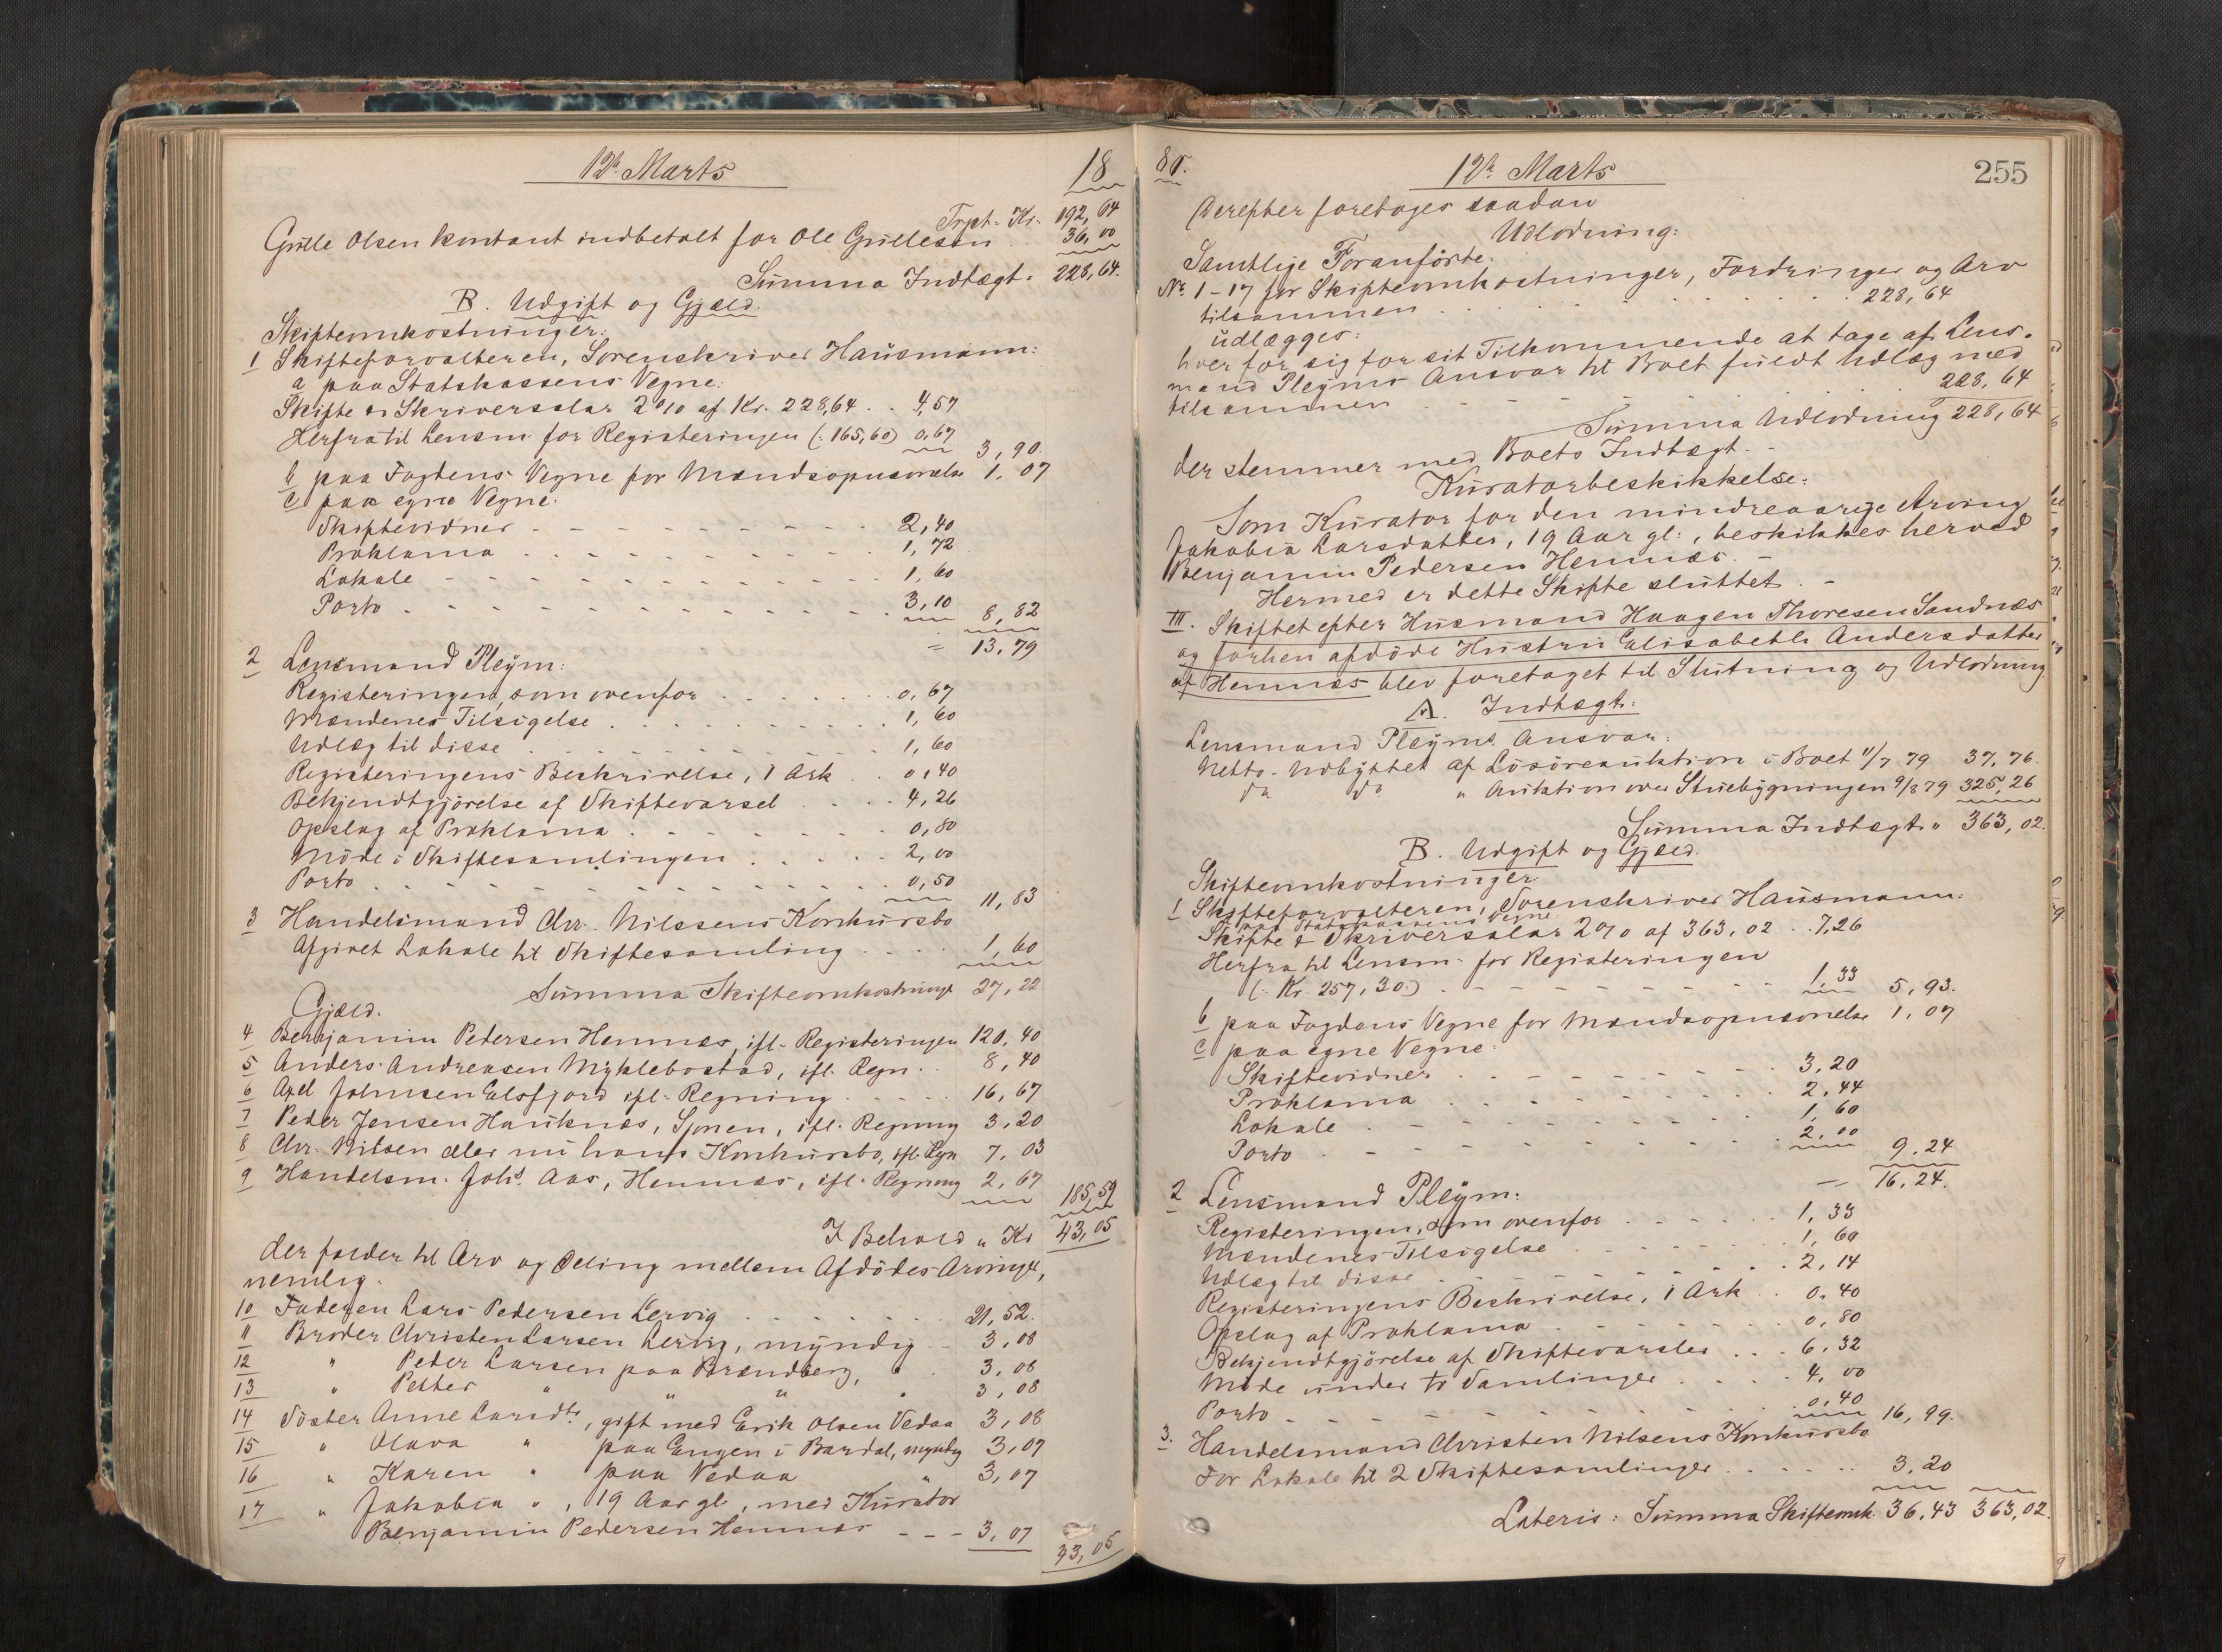 12te Marts
18
Trpt. Kr. 192,64
Gulle Olsen kontant indbetalt for Ole Gullesen .. 36,00
Summa Indtægt. 228,64.
B. Udgift og Gjæld.
Skifteomkostninger:
1 Skifteforvalteren, Sorenskriver Hausmann:
a paa Statskassens Vegne:
Skifte & Skriversalær 2% af Kr. 228,64 .. 4,57
Herfra til Lensm. for Registeringen (: 165,60) 0,67
3,90.
b paa Fogdens Vegne for Mændsopnævnelse 1,07
c paa egne Vegne:
Skiftevidner 2,40
Proklama 1,72
Lokale 1,60
Porto 3,10 8,82
13,79
2 Lensmand Pleÿm:
Registeringen, som ovenfor 0,67
Mændenes Tilsigelse 1,60
Udlæg til disse 1,60
Registeringens Beskrivelse, 1 Ark .. 0,40
Bekjendtgjörelse af Skiftevarsel 4,26
Opslag af Proklama 0,80
Möde i Skiftesamlingen 2,00
Porto 0,50
11,83
3 Handelsmand Chr. Nilssens Konkursbo
Afgivet Lokale til Skiftesamling 1,60
Summa Skifteomkostninger 27,22
Gjæld.
4 Benjamin Petersen Hemnæs, ifl. Registeringen 120,40
5 Anders Andreasen Mÿklebostad, ifl. Regn. 8,40
6 Axel Johnsen Elsfjord ifl. Regning 16,67
7 Peder Jensen Hauknæs, Sjonen, ifl. Regning 3,20
8 Chr. Nilsen eller nu hans Konkursbo, ifl. Rgn 7,03
9 Handelsm. Johs. Aas, Hemnæs, ifl. Regning 2,67
185,59
I Behold " Kr. 43,05
der falder til Arv og Deling mellem Afdödes Arvinger,
nemlig:
10 Faderen Lars Pedersen Lervig 21,52.
11 Broder Christen Larsen Lervig, mÿndig 3,08
12 " Peter Larsen paa Brændberg, " 3,08
13 " Petter " " " " 3,08
14 Söster Anne Larsdtr, gift med Erik Olsen Vedaa 3,08
15 " Olava " paa Engen i Bardal, myndig 3,07
16 " Karen " paa Vedaa " 3,07
17 " Jakobia ", 19 Aar gl., med Kurator
Benjamin Pedersen Hemnæs - - - 3,07
43,05
80.
12te Marts
255
Derefter foretoges saadan
Udlodning:
Samtlige Foranförte:
No. 1-17 for Skifteomkostninger, Fordringer og Arv
tilsammen 228,64
udlægges:
hver for sig for sit Tilkommende at tage af Lens-
mand Pleÿms Ansvar til Boet fuldt Udlæg med
tilsammen 228,64
Summa Udlodning 228,64
der stemmer med Boets Indtægt. -
Kuratorbeskikkelse:
Som Kurator for den mindreaarige Arving
Jakobia Larsdatter, 19 Aar gl., beskikkes herved
Benjamin Pedersen Hemnæs. -
Hermed er dette Skifte sluttet. -
III. Skiftet efter Husmand Haagen Thoresen Sandnæs
og forhen afdöde Hustru Elisabeth Andersdatter
af Hemnæs blev foretaget til Slutning og Udlodning
A. Indtægt:
Lensmand Pleÿms Ansvar:
Netto-Udbÿttet af Lösöreauktion i Boet 11/7 79 37,76.
do do " Auktion over Stuebÿgningen 9/8 79 325,26
Summa Indtægt " 363,02.
B. Udgift og Gjæld.
Skifteomkostninger
1 Skifteforvalteren, Sorenskriver Hausmann:
a paa Statskassens Vegne
Skifte & Skriversalær 2% af 363,02 .. 7,26
Herfra til Lensm. for Registeringen
(: Kr. 257,30:) 1,33 5,93.
b paa Fogdens Vegne for Mændsopnævnelse 1,07
c paa egne Vegne:
Skiftevidner 3,20
Proklama 2,44
Lokale 1,60
Porto 2,00 9,24
16,24.
2 Lensmand Pleÿm:
Registeringen, som ovenfor 1,33
Mændenes Tilsigelse 1,60
Udlæg til disse 2,14
Registeringens Beskrivelse, 1 Ark .. 0,40
Opslag af Proklama 0,80
Bekjendtgjörelse af Skiftevarsler 6,32
Möde under to Samlinger 4,00
Porto 0,40 16,99.
3. Handelsmand Christen Nilsens Konkursbo
For Lokale til 2 Skiftesamlinger 3,20
Lateris: Summa Skifteomk. 36,43 363,02.